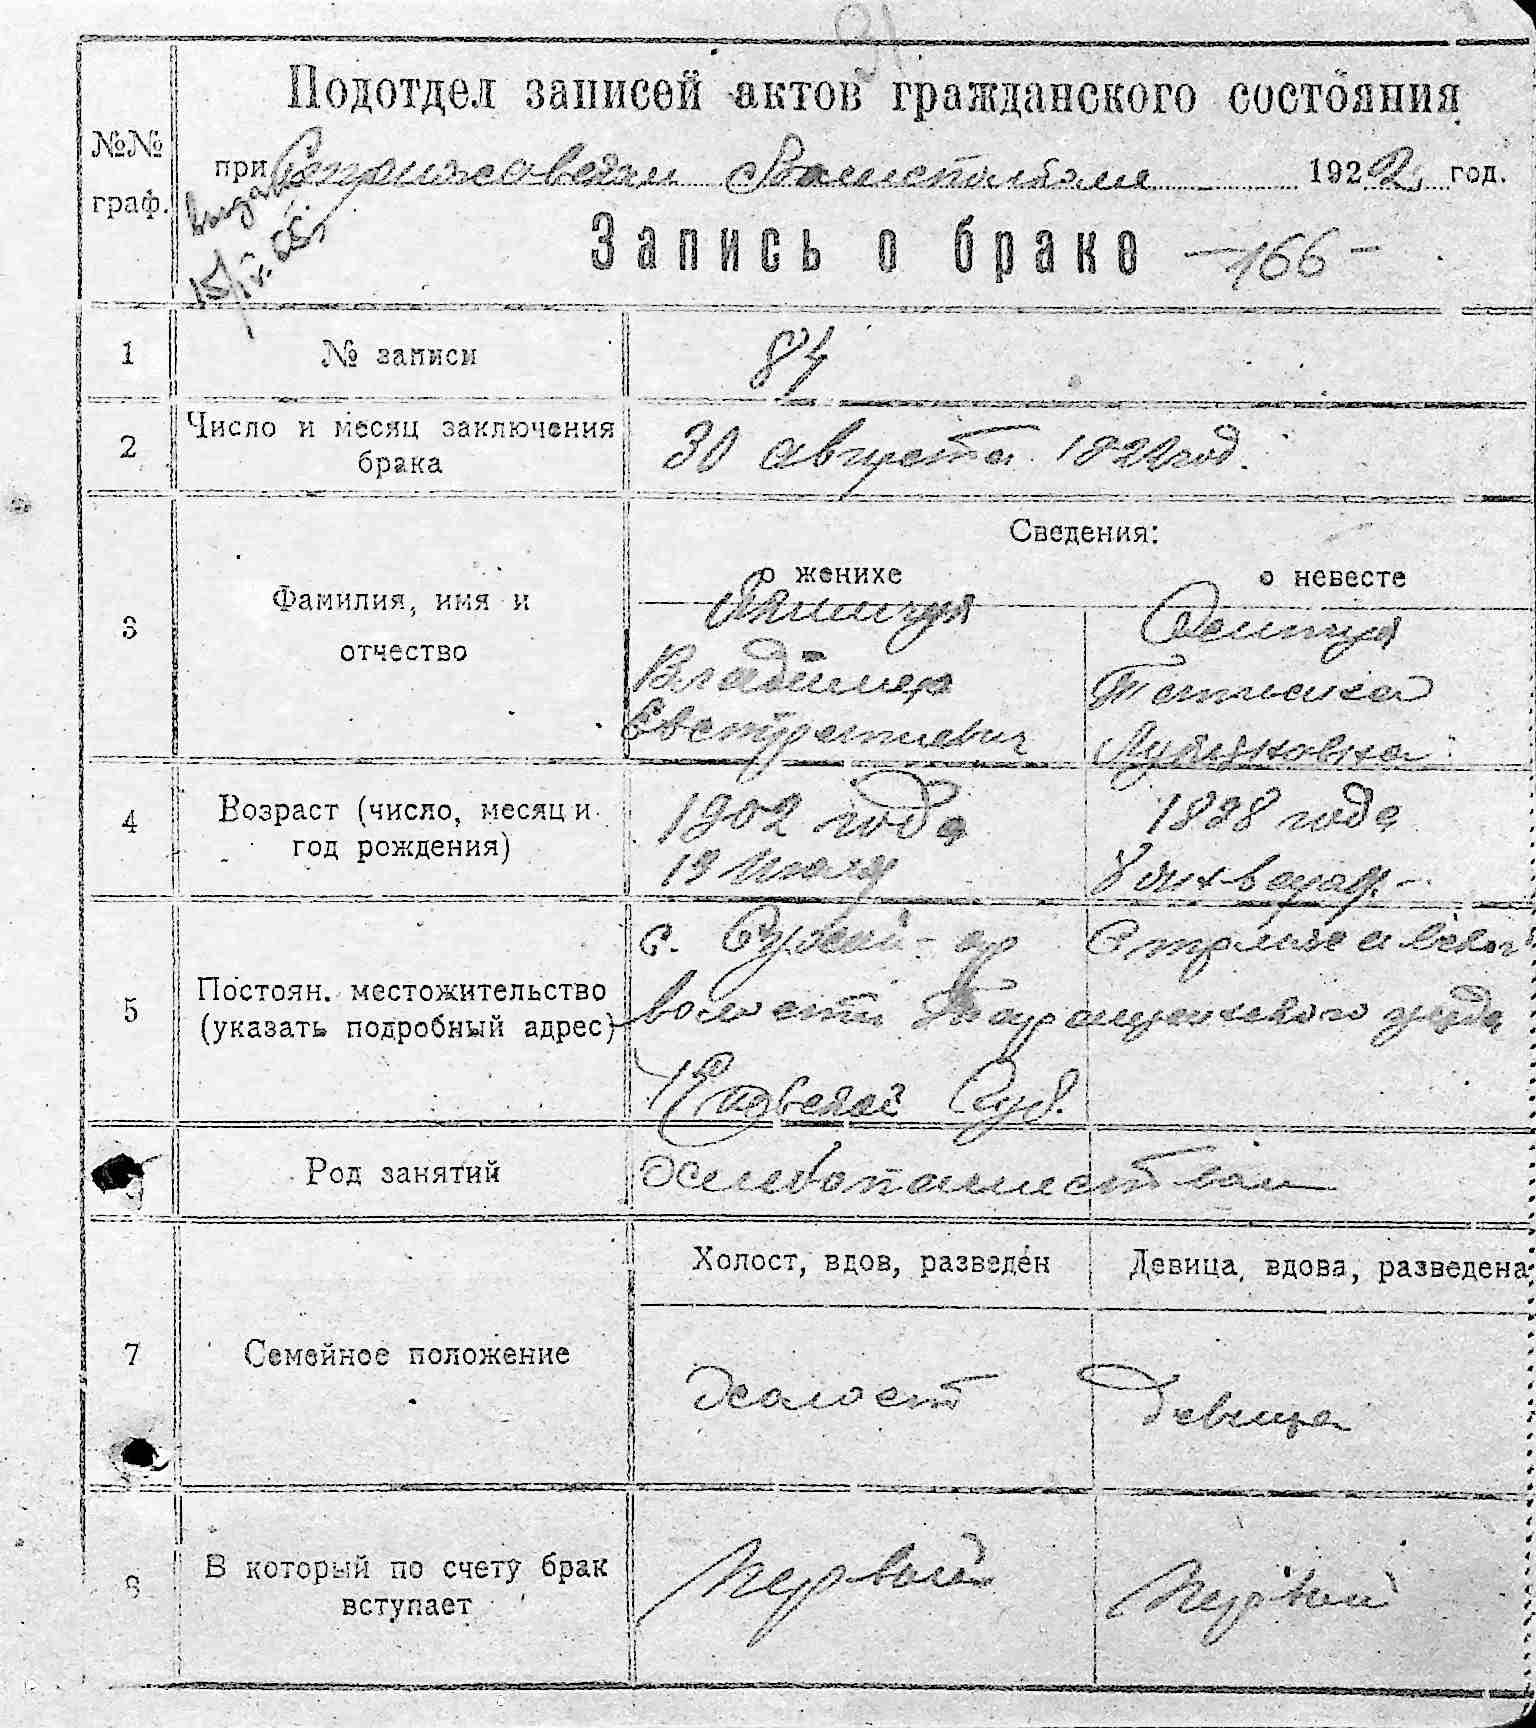 Подотдел записей актов гражданского состояния
№№ граф.
при Стрижавском 1922 год.
Запись о браке —166—
15/IV.
1 № записи 84
2 Число и месяц заключения брака 30 августа 1922 год.
Сведения:
о женихе о невесте
3 Фамилия, имя и отчество
Владимер
Евстратиевич
4 Возраст (число, месяц и год рождения) 1902 года 1898 года
19 Июля 8
5 Постоян. местожительство (указать подробный адрес)
с. яр
волости Таращанского уезда
Киевской Губ.
Род занятий Хлебопашеством
Холост, вдов, разведен Девица, вдова, разведена
7 Семейное положение холост девица
8 В который по счету брак вступает Первый Первый